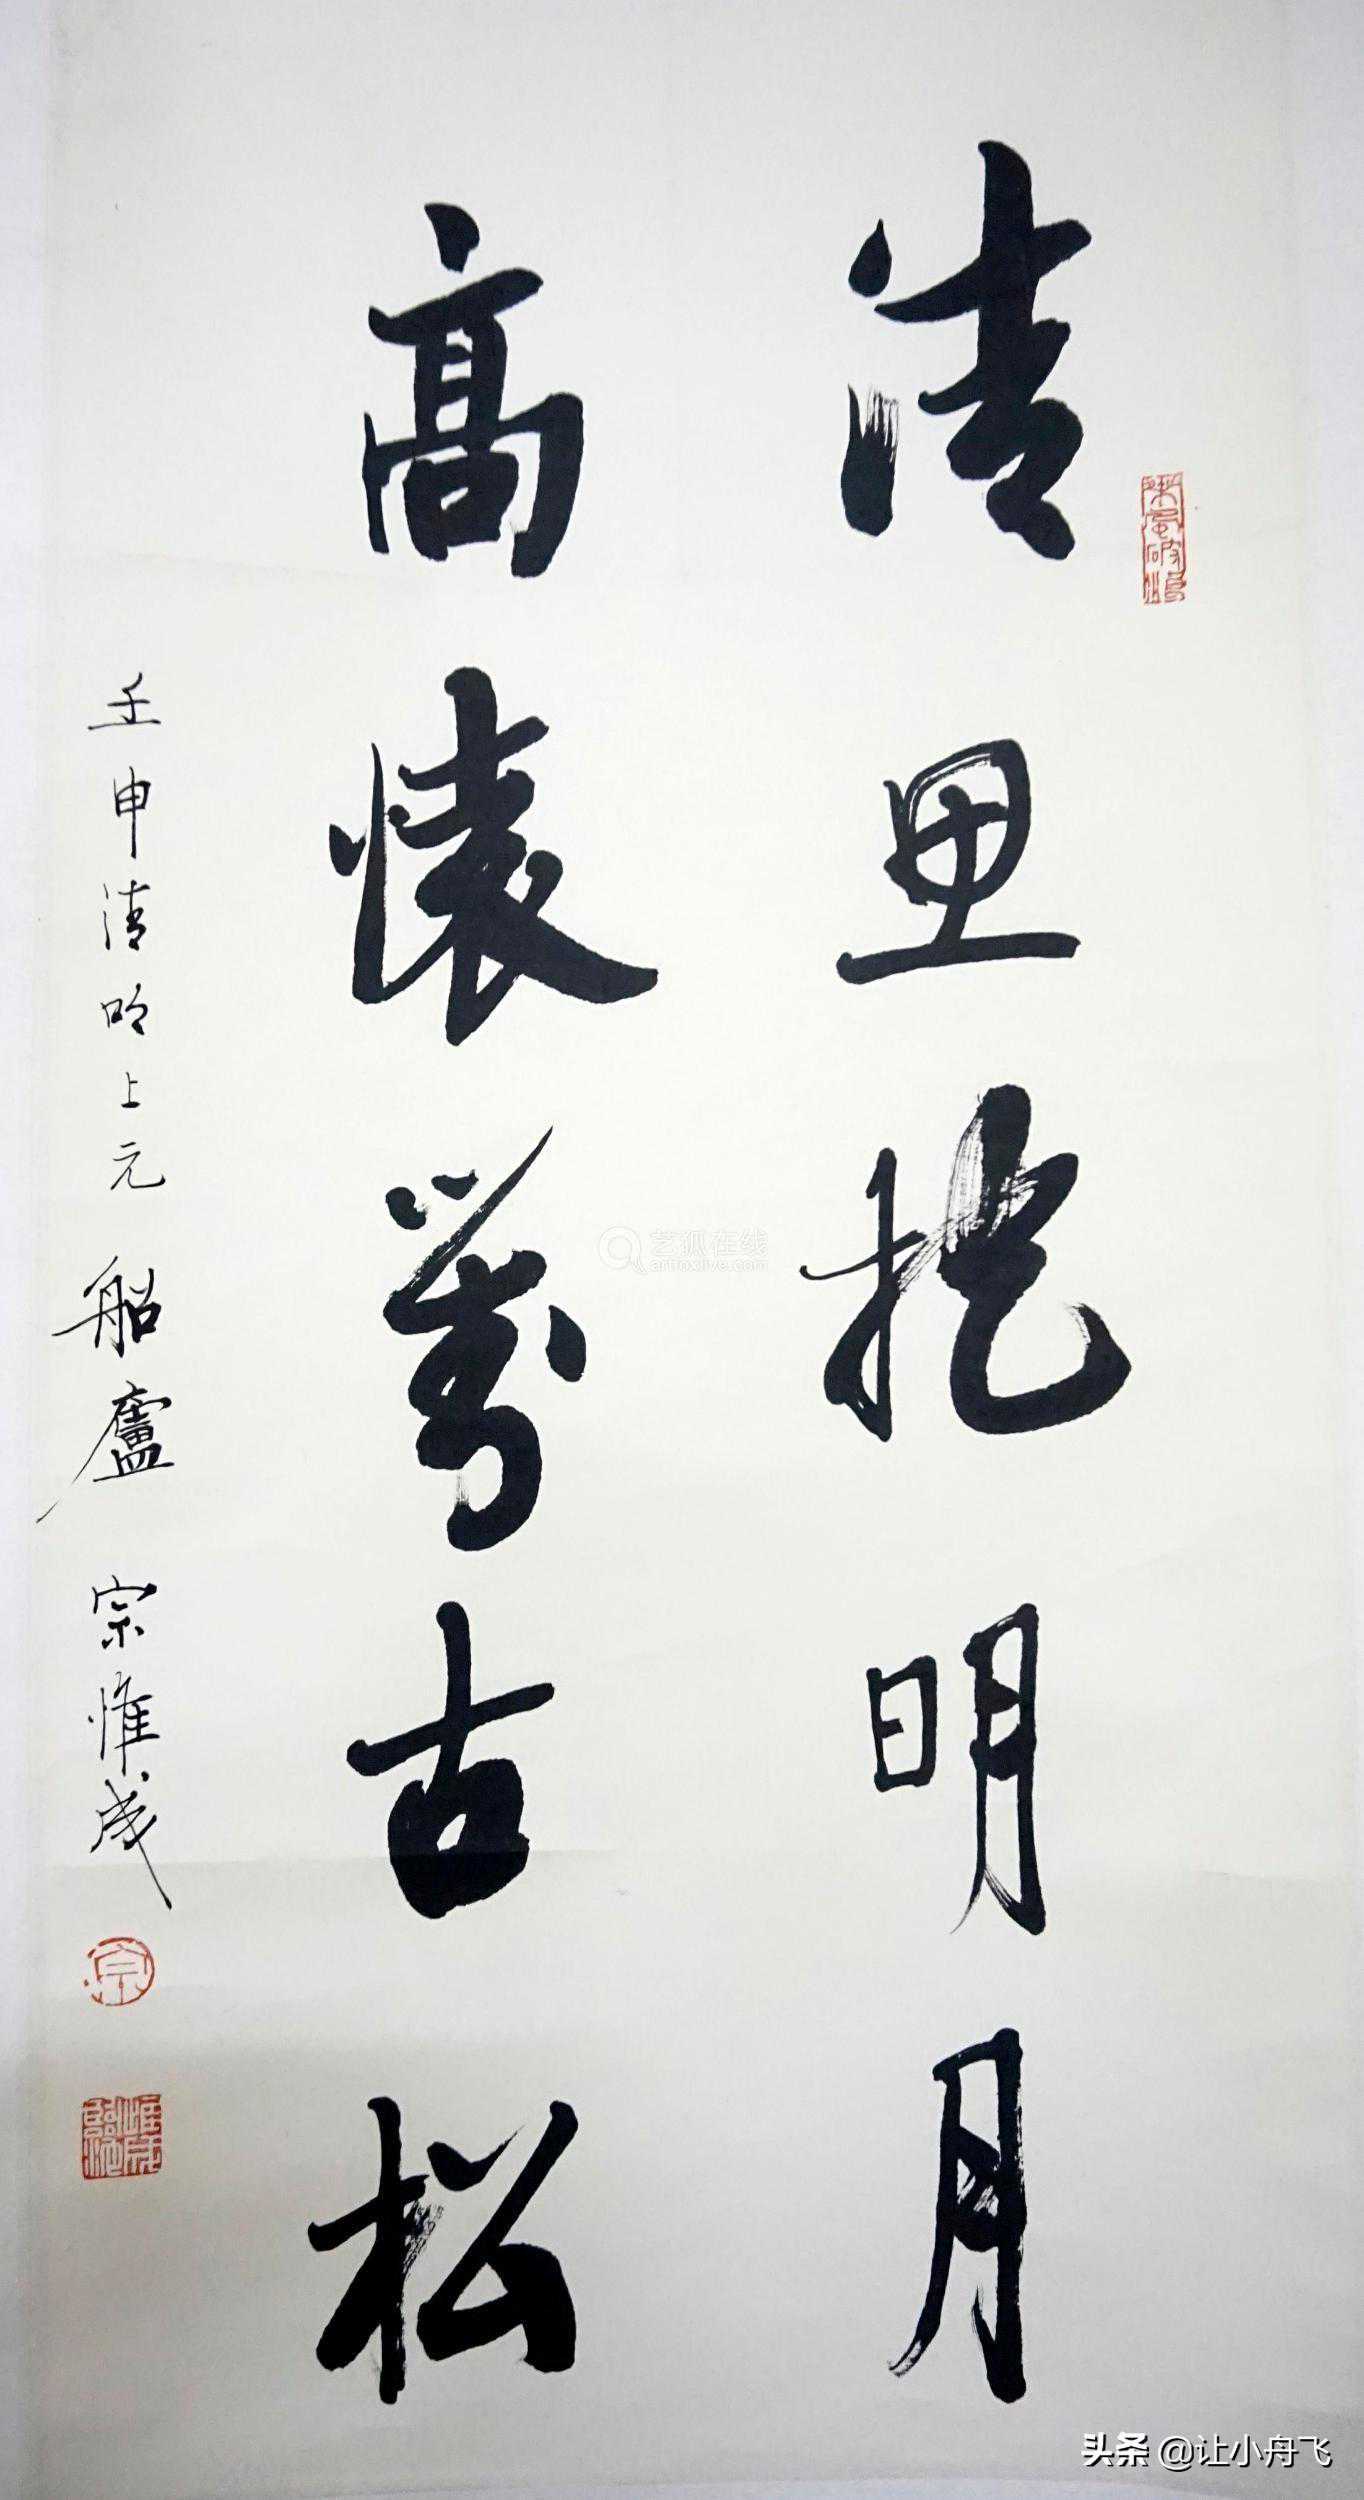 清思抱明月
高懷萬古松
壬申清明上元 船廬 宗惟成
艺狐在线
artfoxlive.com
头条 @让小舟飞